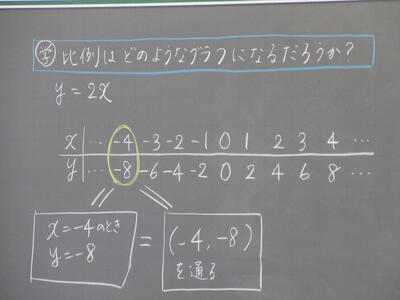 学 比例はどのようなグラフになるだろうか？
y = 2x
x | … -4 -3 -2 -1 0 1 2 3 4 …
y | … -8 -6 -4 -2 0 2 4 6 8 …
x=-4のとき
y=-8
=
(-4, -8)
を通る